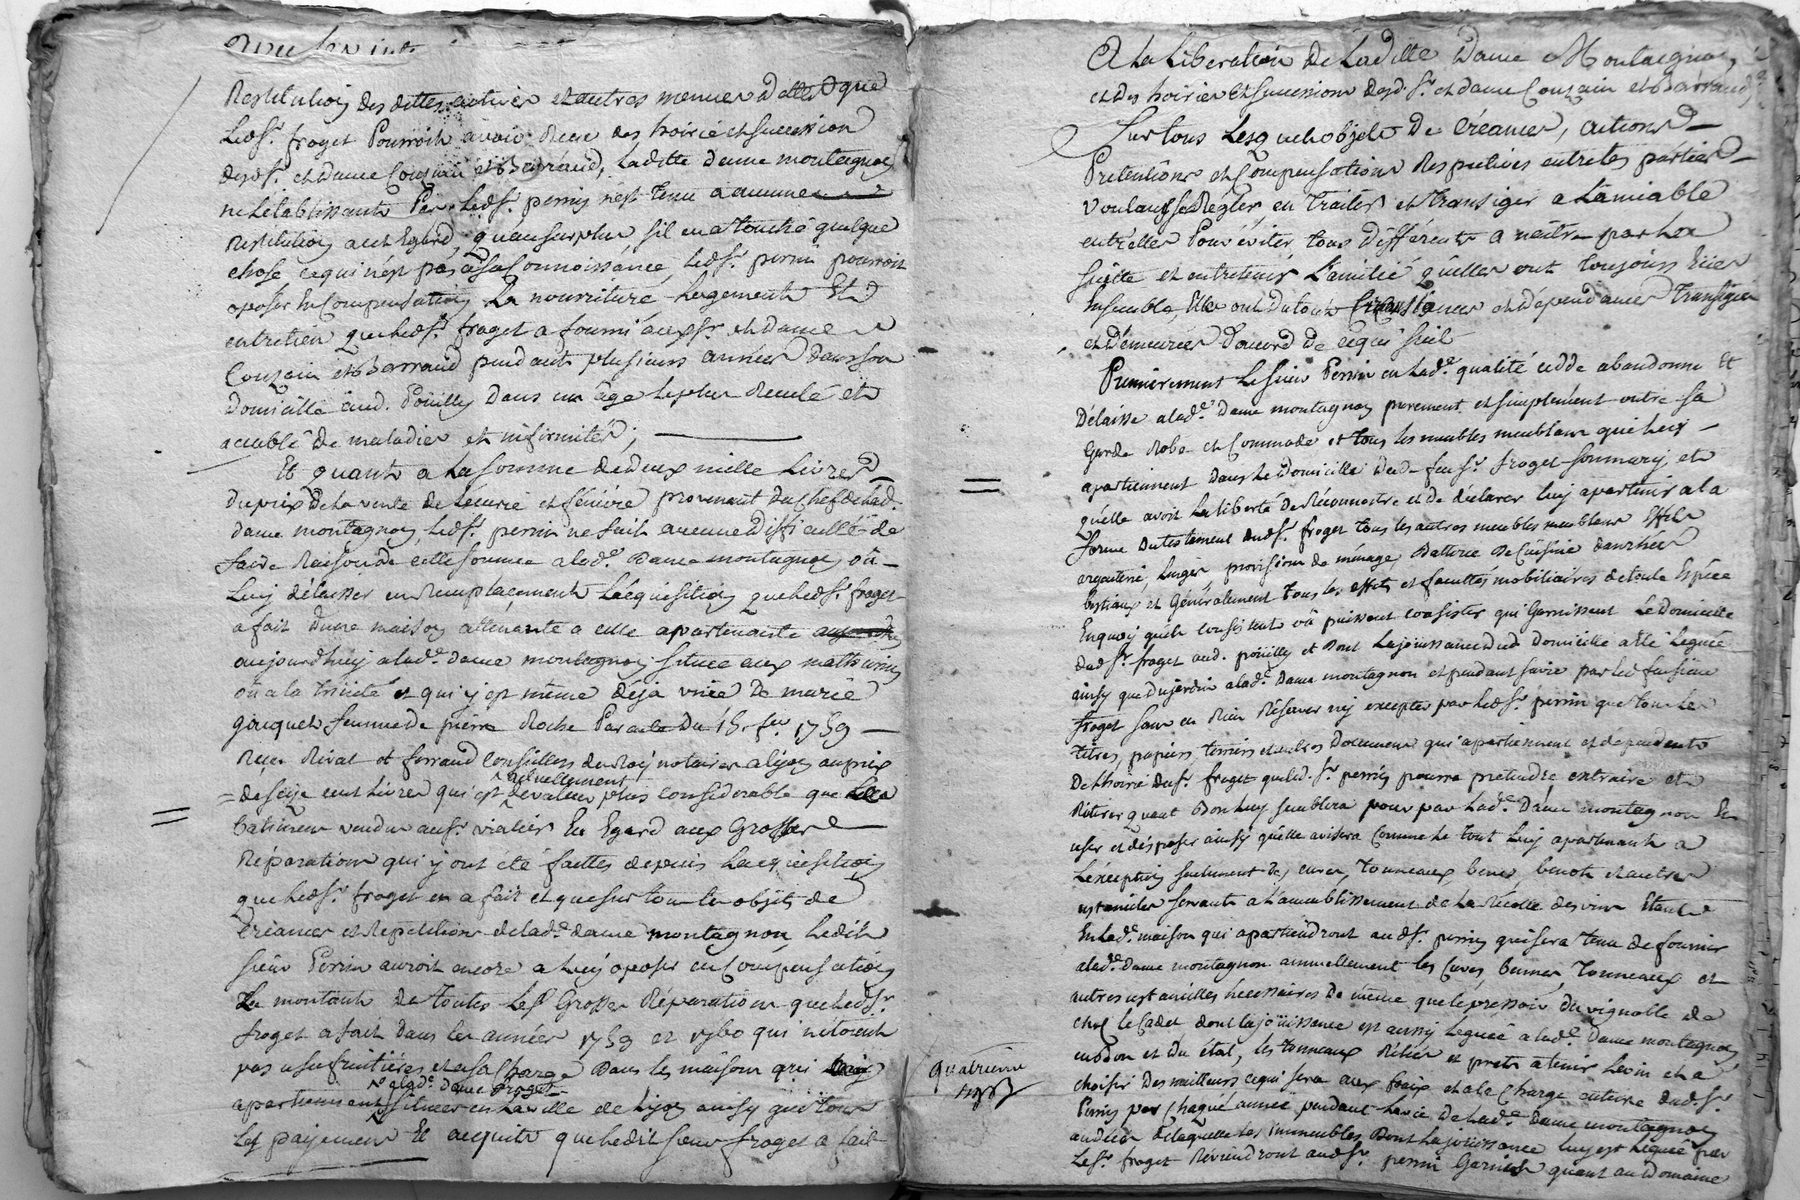 Restitution des dettes actives et autres menues dettes que
Ledsr. froget Pourroit avoir Recu des hoirie et succession
desdsr. et dame Couzain et Barraud, Laditte dame montagnon
ne Letablissant Pas Ledsr. perrin n'est tenu a aucune
Restitution a cet Egard, qu'au surplus sil en a touché quelque
chose ce qui n'est pas a sa Connoissance, Ledsr. perrin pourroit
oposer En Compensation La nourriture Logement Et
entretien que Ledsr. froget a fourni auxdsr. et dame
Couzain et Barraud pendant plusieurs années dans son
domicille aud. Pouilly dans un âge Le plus Reculé et
accablé de maladies et infirmités;
Et quant a La somme de deux mille Livres
du prix de La vente de Lécurie et féniére provenant du Chef de lad.
dame montagnon, Ledsr. perrin ne fait aucune difficulté de
faire Raison de cette somme a lade. Dame montagnon, ou
Luy délaisser en Remplacement Lacquisition que Ledsr. froget
a fait d'une maison attenante a celle apartenante
aujourdhuy a lade. dame montagnon située aux
ou a la trinité et qui y est même déja unie de marie
jacquet femme de pierre Roche Par acte du 15. fer 1759
Reçu Rivat et ferraud Conseillers du Roy notaires a lyon au prix
de seize cent Livres qui est actuellement de valeur plus considerable que
batimens vendus ausr. vialier En Egard aux Grosses
Réparations qui y ont été faittes depuis Lacquisition
que Ledsr. froget en a fait et que sur tous les objets de
Créances et Repetitions de lade. dame montagnon, Ledit
sieur Perrin auroit encore a Luy oposer en Compensation
Le montant de toutes Les Grosses Réparations que Ledsr.
froget a fait dans les années 1759 et 1760 qui n'étoient
pas usufruitiéres et a sa charge dans les maisons qui
apartiennent a lade. dame froget situées en La ville de Lyon ainsy que tous
Les payemens Et acquits que Ledit sieur froget a fait
A La Liberation de Laditte Dame Montagnon,
et des hoiries et successions desdsr. et dame Couzain et Barraud
Sur tous Lesquels objets de Créances, actions
Pretentions et Compensations Respectives entre les parties
voulant se Régler en traiter et transiger a Lamiable
entr'elles Pour éviter tous différents a naitre par La
suitte et entretenir L'amitié qu'elles ont toujours Eües
Ensemble, Elles ont du tout Circonstances et dépendances transigées
et demeurées d'accord de ce qui suit
Premierement Le sieur Perrin en lade. qualité cedde abandonne Et
Délaisse a lade. Dame montagnon purement et simplement outre sa
Garde Robe et Commode et tous les meubles meublans que Luy
apartiennent dans Le Domicille dud. feu sr. froget et
qu'elle avoit La liberté de Réconnoitre et de déclarer Luy apartenir a la
forme du testament dudsr. froget tous les autres meubles meublans Effets
argenterie, Linges provisions de menage, Batterie de Cuisine danrées
bestiaux et Généralement tous les effets et facultés mobiliaires de toute Espéce
En quoy qu'ils consistent ou puissent consister qui Garnissent Le domicille
dudsr. froget aud. pouilly et dont La jouissance dud. domicille a été leguée
ainsy que du jardin a lade. Dame montagnon et pendant sa vie par led. feu sieur
froget sans en Rien Réserver ny excepter par Ledsr. perrin que tous Les
titres, papiers, terriers et autres documens qui apartiennent et dependent
De L'hoirie dusr. froget que led. sr. perrin pourra pretendre extraire et
Rétirer quant Bon Luy semblera pour par lade. Dame montagnon En
user et disposer ainsy qu'elle avisera Comme Le tout Luy apartenant a
L'éxception seulement des cuves, tonneaux, benes, benots et autres
ustanciles servants a L'ameublissement de La Récolte des vins Etant
En lade. maison qui apartiendront audsr. perrin qui sera tenu de fournir
a lade. Dame montagnon annuellement les Cuves, bennes, tonneaux et
autres ustanciles necessaires de même que le pressoir du vignoble de
chez le Cadet dont la joüissance est aussy Leguée a lade. Dame montagnon
en bon et du état, les tonneaux Réliés et prets a tenir Le vin et a
choisir des meilleurs ce qui sera aux fraix et a la Charge entiere dudsr.
Perrin par Chaque année pendant La vie de Lade. Dame montagnon
au deces de laquelle Les immeubles dont La jouissance Luy est Leguée par
Le sr. froget Réviendront audsr. perrin Garnis quant au Domaine
quatrieme